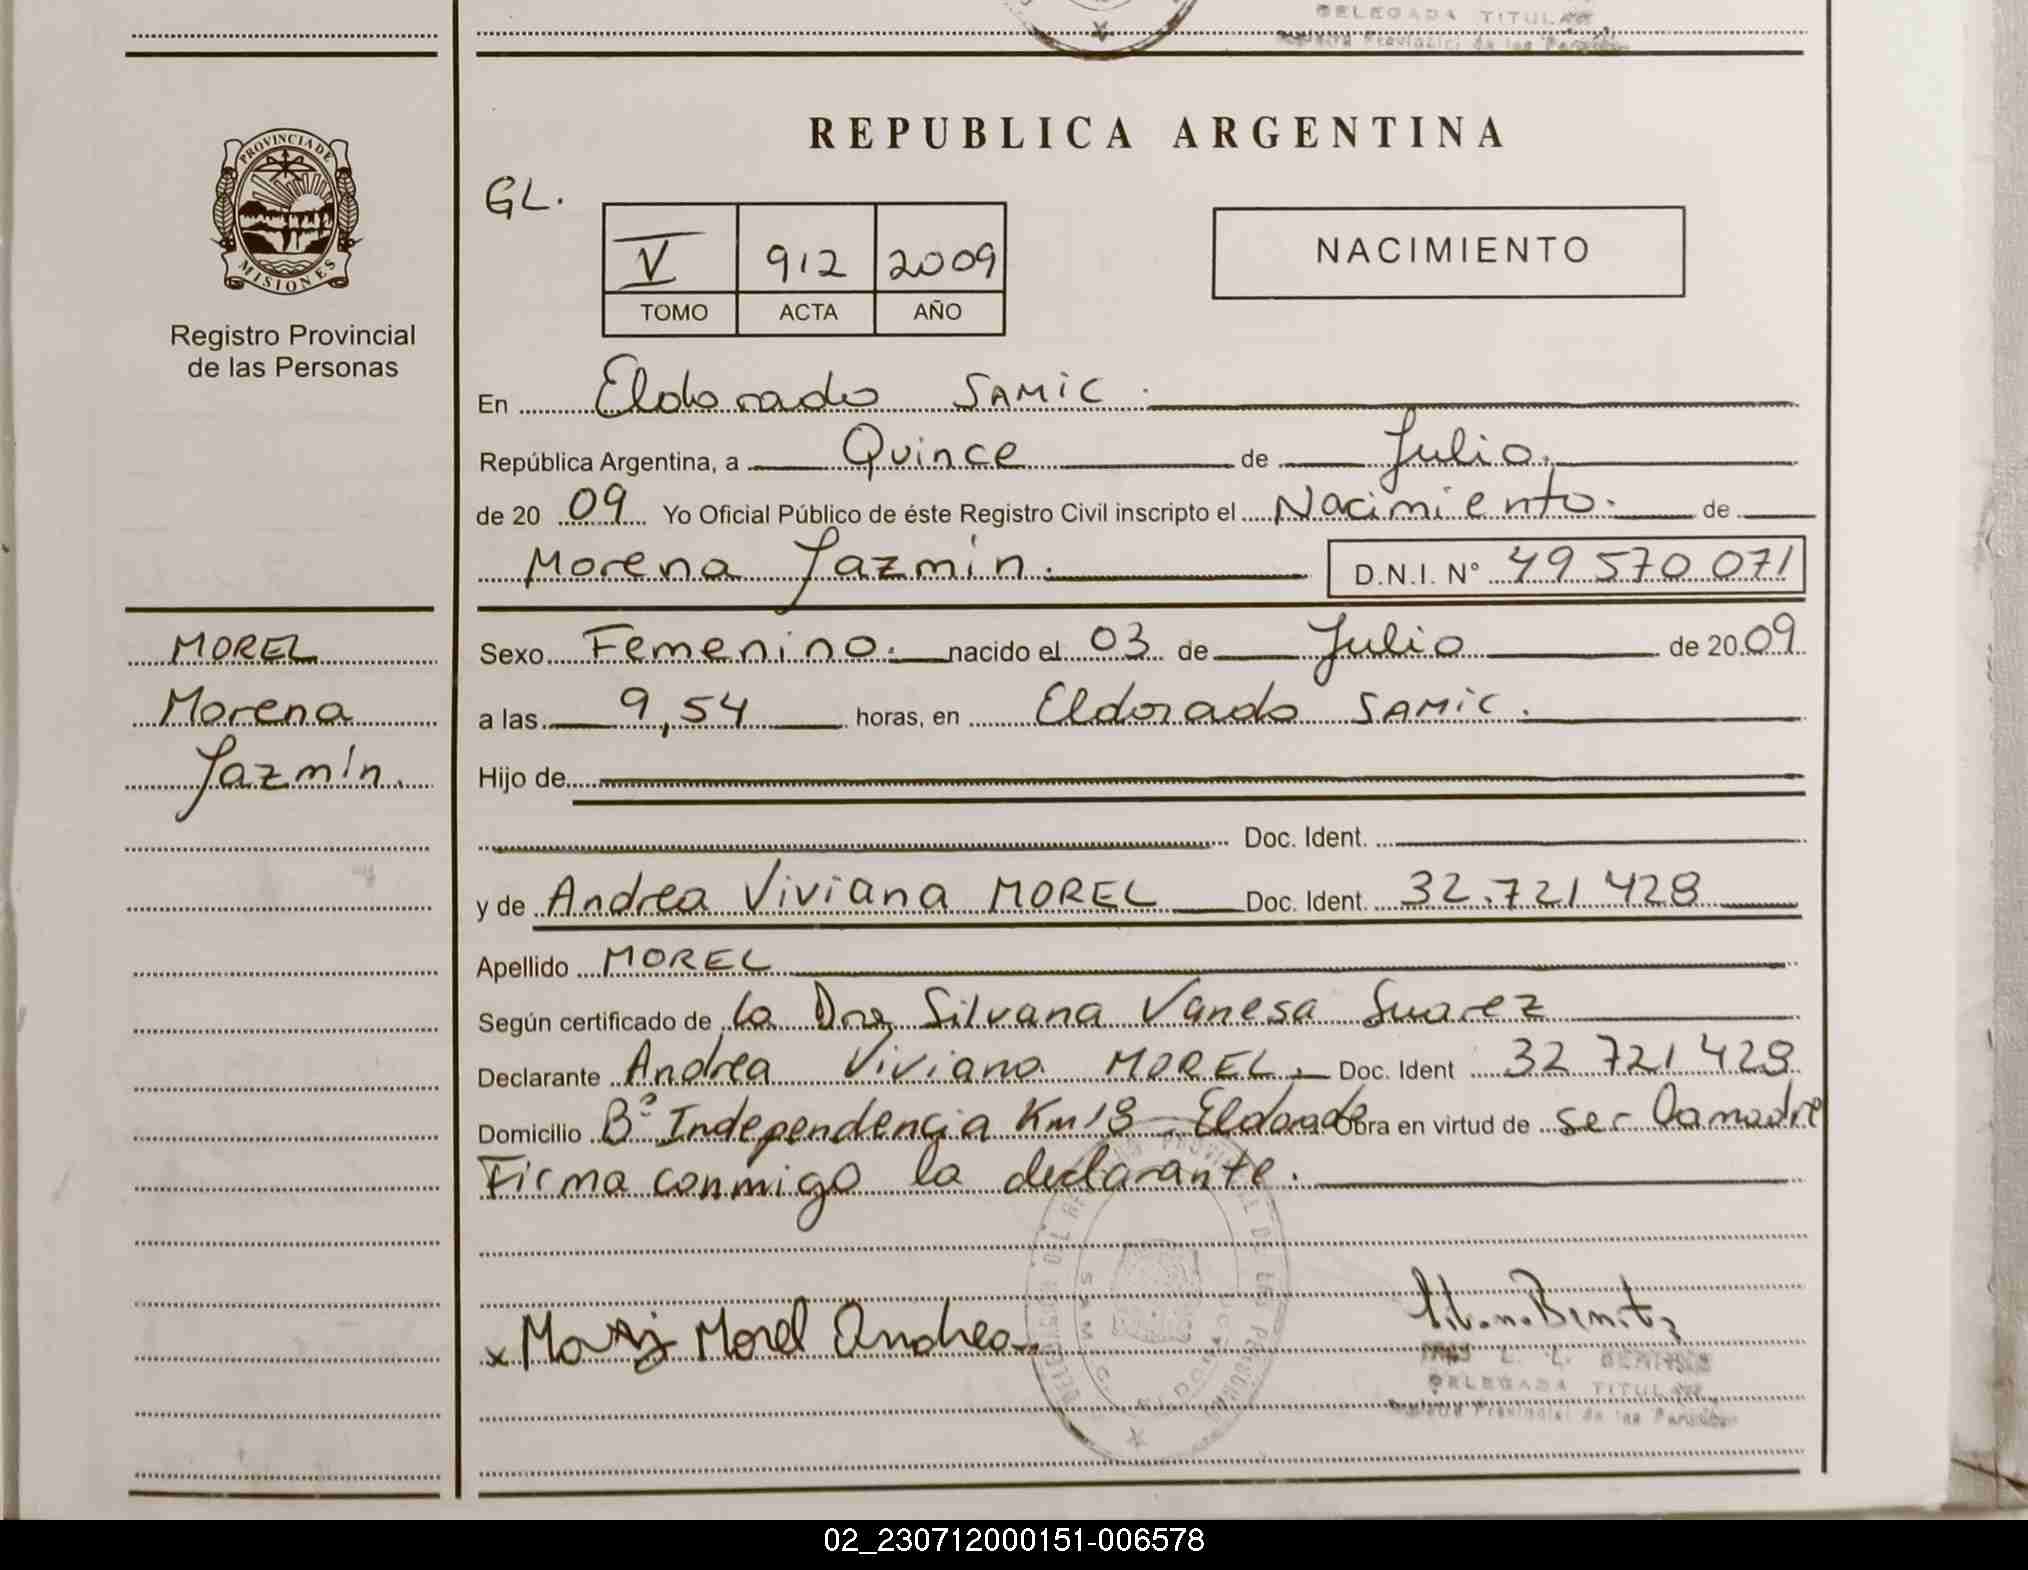 DELEGADA TITULAR
Registro Provincial de las Personas
REPUBLICA ARGENTINA
PROVINCIA DE
MISIONES
Registro Provincial
de las Personas
GL.
V 912 2009
TOMO ACTA AÑO
NACIMIENTO
En Eldorado SAMIC.
República Argentina, a Quince de Julio.
de 20 09 Yo Oficial Público de éste Registro Civil inscripto el Nacimiento. de
Morena Jazmín. D.N.I. N° 49 570 071
MOREL
Morena
Jazmín.
Sexo Femenino. nacido el 03 de Julio de 20 09
a las 9,54 horas, en Eldorado SAMIC.
Hijo de
Doc. Ident.
y de Andrea Viviana MOREL Doc. Ident. 32.721 428
Apellido MOREL
Según certificado de la Dra Silvana Vanesa Suarez
Declarante Andrea Viviana MOREL. Doc. Ident 32 721 428
Domicilio Bº Independencia Km 18 - Eldorado Obra en virtud de ser la madre
Firma conmigo la declarante.
x Morel Andrea
Benitez
DELEGADA TITULAR
Registro Provincial de las Personas
02_230712000151-006578